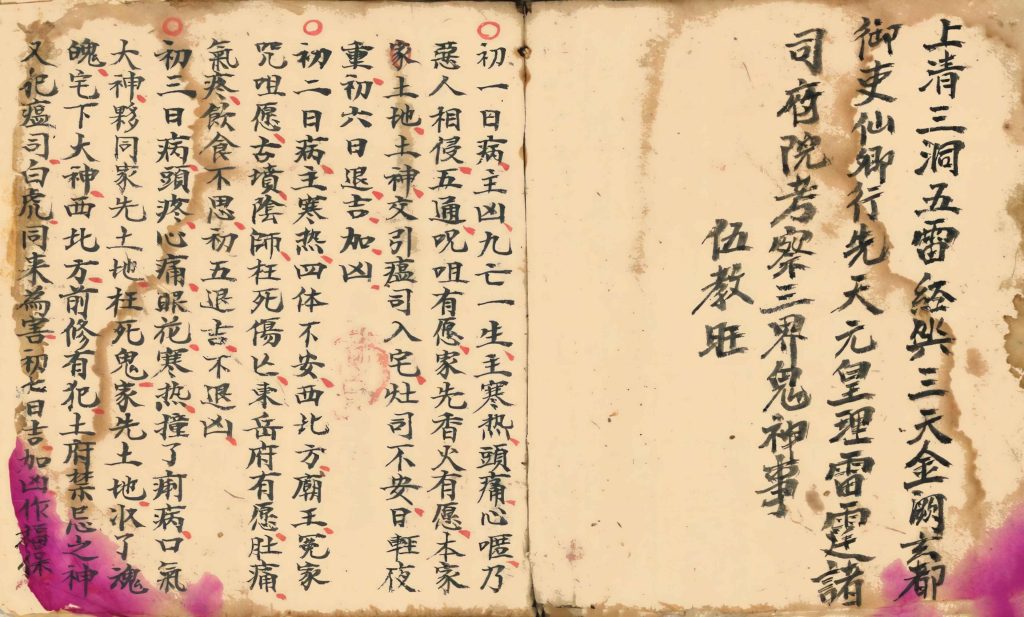 上清三洞五雷经典三天金阙玄都
御史仙卿行先天元皇理雷霆諸
司府院考察三界鬼神事
伍教旺
初一日病主凶九亡一生主寒热頭痛心嘔乃
惡人相侵五通呪咀有愿家先香火有愿本家
家土地土神交引瘟司入宅灶司不安日輕夜
重初六日退吉加凶
初二日病主寒热四体不安西北方廟王冤家
咒咀愿古墳陰師枉死傷亡東岳府有愿肚痛
氣疼飲食不思初五退吉不退凶
初三日病頭疼心痛眼花寒热撞了痢病口氣
大神夥同家先土地枉死鬼家先土地收了魂
魄宅下大神西北方前修有犯土府禁忌之神
又犯瘟司白虎同来為害初七日吉加凶作福保